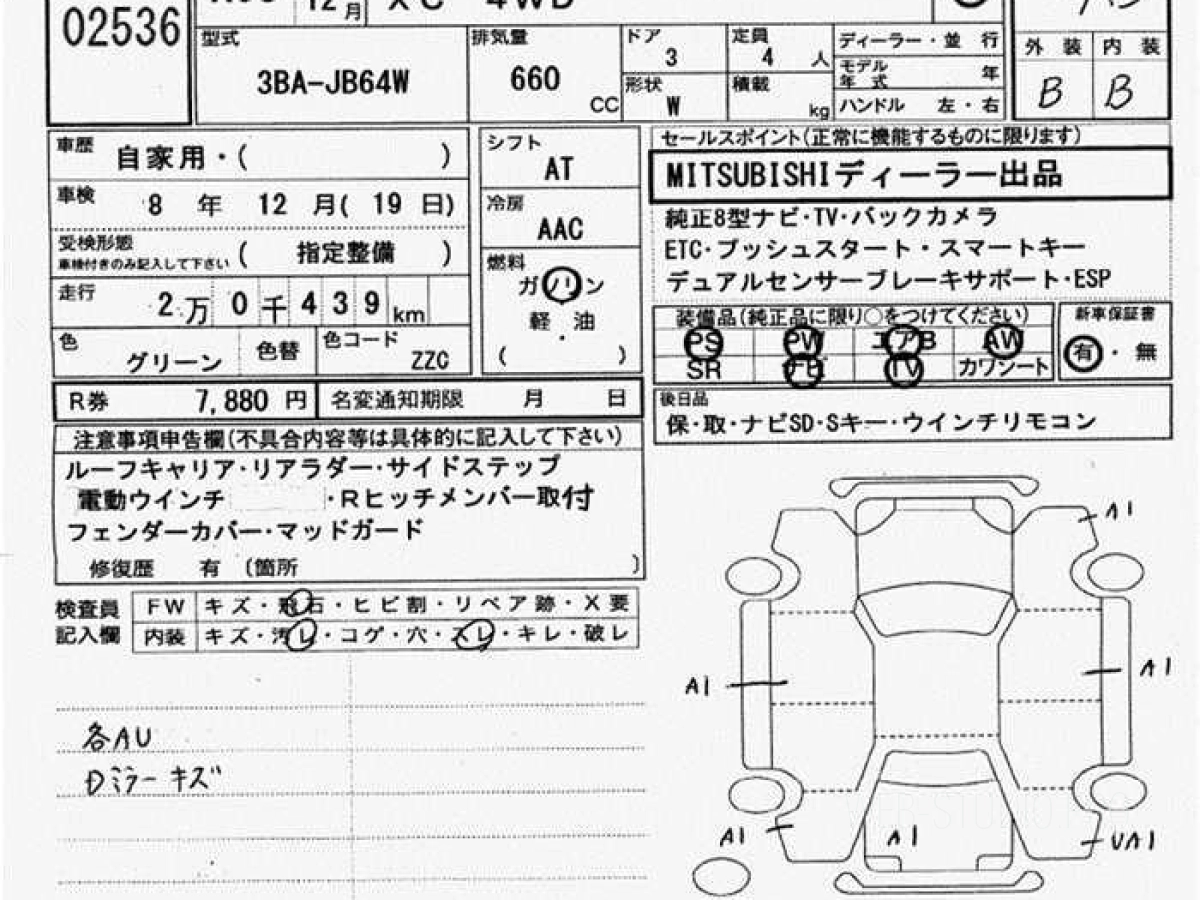 02536
12月 XC 4WD
型式 3BA-JB64W
排気量 660 CC
ドア 3
定員 4 人
形状 W
積載 kg
ディーラー・並 行
モデル年式 年
ハンドル 左・右
外 装 内 装
B B
車歴 自家用・( )
車検 8 年 12 月( 19 日)
受検形態 ( 指定整備 )
車検付きのみ記入して下さい
走行 2万 0千 439km
色 グリーン 色替 色コード ZZC
シフト AT
冷房 AAC
燃料
ガソリン
軽・油
( )
セールスポイント(正常に機能するものに限ります)
MITSUBISHIディーラー出品
純正8型ナビ・TV・バックカメラ
ETC・プッシュスタート・スマートキー
デュアルセンサーブレーキサポート・ESP
装備品(純正品に限り○をつけてください)
PS PW エアB AW
SR ナビ TV カワシート
新車保証書
有・無
後日品
保・取・ナビSD・Sキー・ウインチリモコン
R券 7,880 円 名変通知期限 月 日
注意事項申告欄(不具合内容等は具体的に記入して下さい)
ルーフキャリア・リアラダー・サイドステップ
電動ウインチ ・Rヒッチメンバー取付
フェンダーカバー・マッドガード
修復歴 有 〔箇所 〕
検査員記入欄
FW キズ・飛石・ヒビ割・リペア跡・X要
内装 キズ・汚レ・コゲ・穴・スレ・キレ・破レ
各AU
Dミラーキズ
A1
A1
A1
A1
A1
UA1